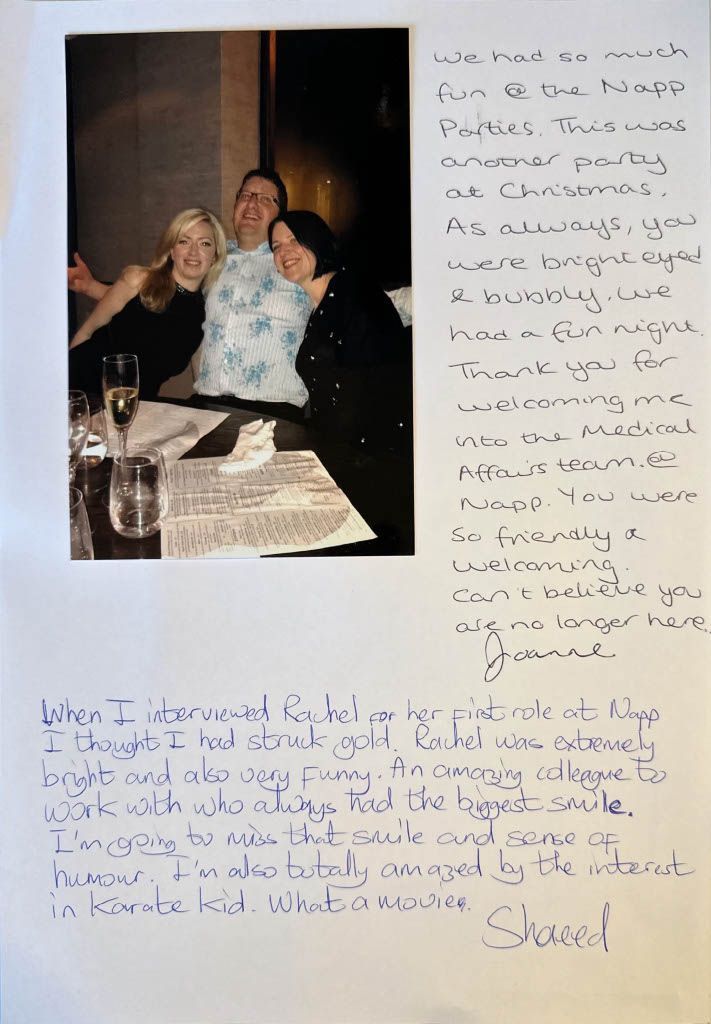 We had so much
fun @ the Napp
Parties. This was
another party
at Christmas.
As always, you
were bright eyed
& bubbly. We
had a fun night.
Thank you for
welcoming me
into the Medical
Affairs team. @
Napp. You were
so friendly &
welcoming.
Can't believe you
are no longer here.
Joanne
When I interviewed Rachel for her first role at Napp
I thought I had struck gold. Rachel was extremely
bright and also very funny. An amazing colleague to
work with who always had the biggest smile.
I'm going to miss that smile and sense of
humour. I'm also totally amazed by the interest
in Karate Kid. What a movie.
Shaeed